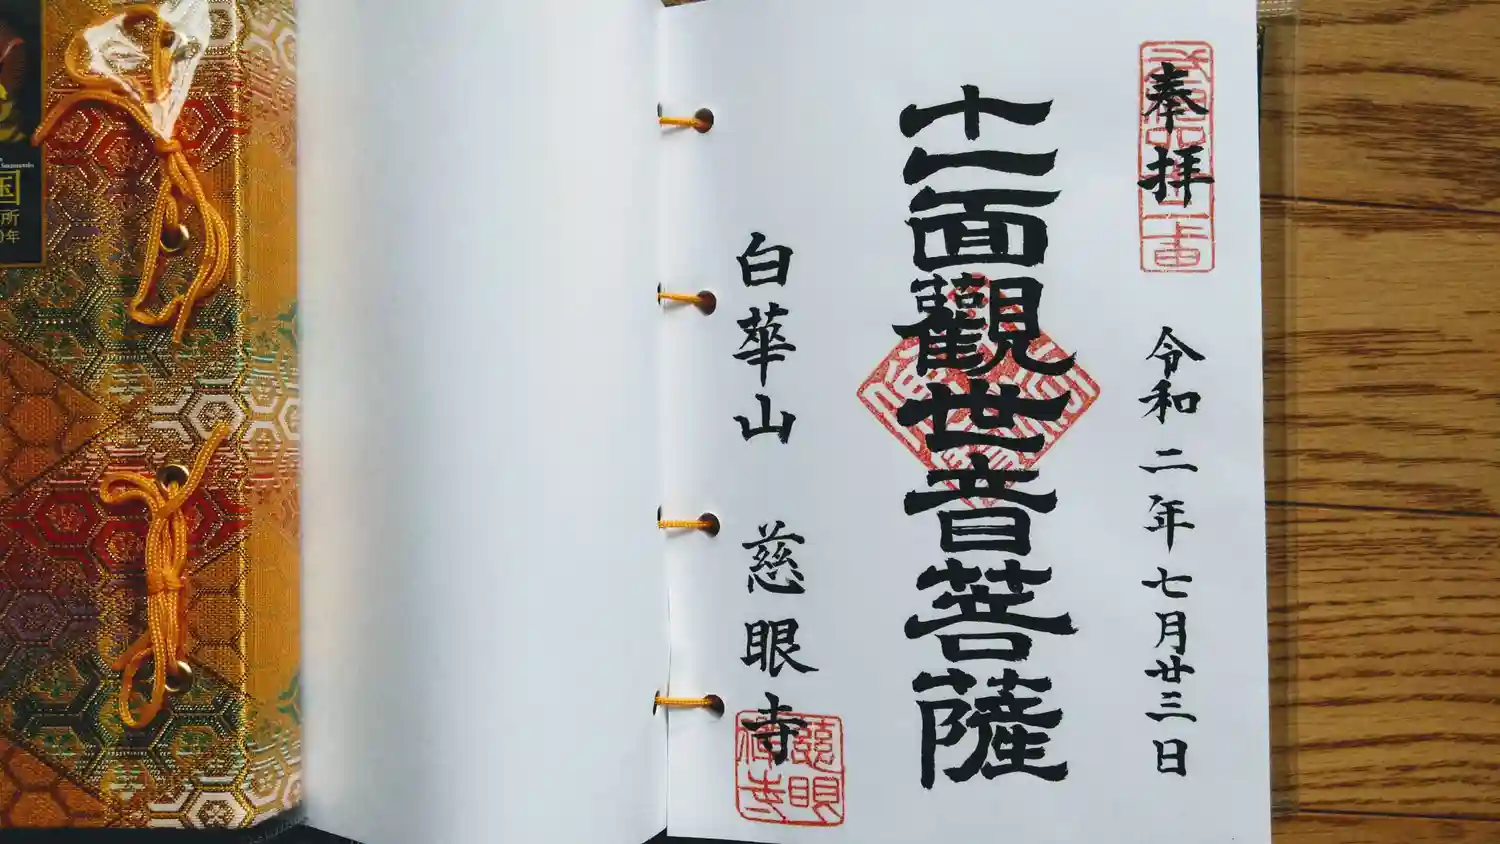 奉拝
令和二年七月廿三日
十一面觀世音菩薩
白華山 慈眼寺
慈眼
国
所
年